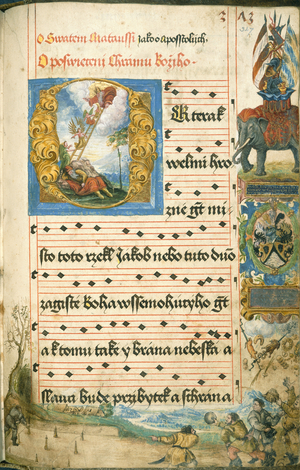 O Swatem Matausſi jako o apoſſtolijch.
O poſwieceni Chramu Božiho.
313
Kterak
welmi hro
zné gt mi
ſto toto rzekl Jakob nebo tuto duo
zagiſte boha wſſemohúcyho gt
a k tomu take y brána nebeſka a
ſlauti bude przibytek a ſchrana